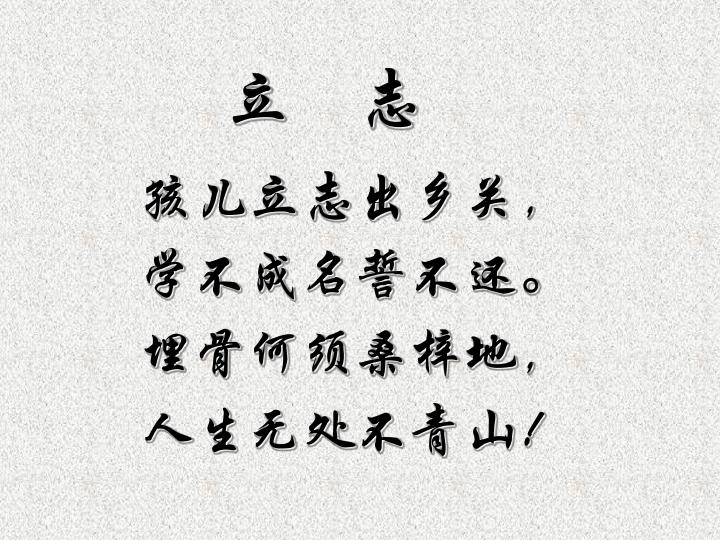 立 志
孩儿立志出乡关，
学不成名誓不还。
埋骨何须桑梓地，
人生无处不青山！